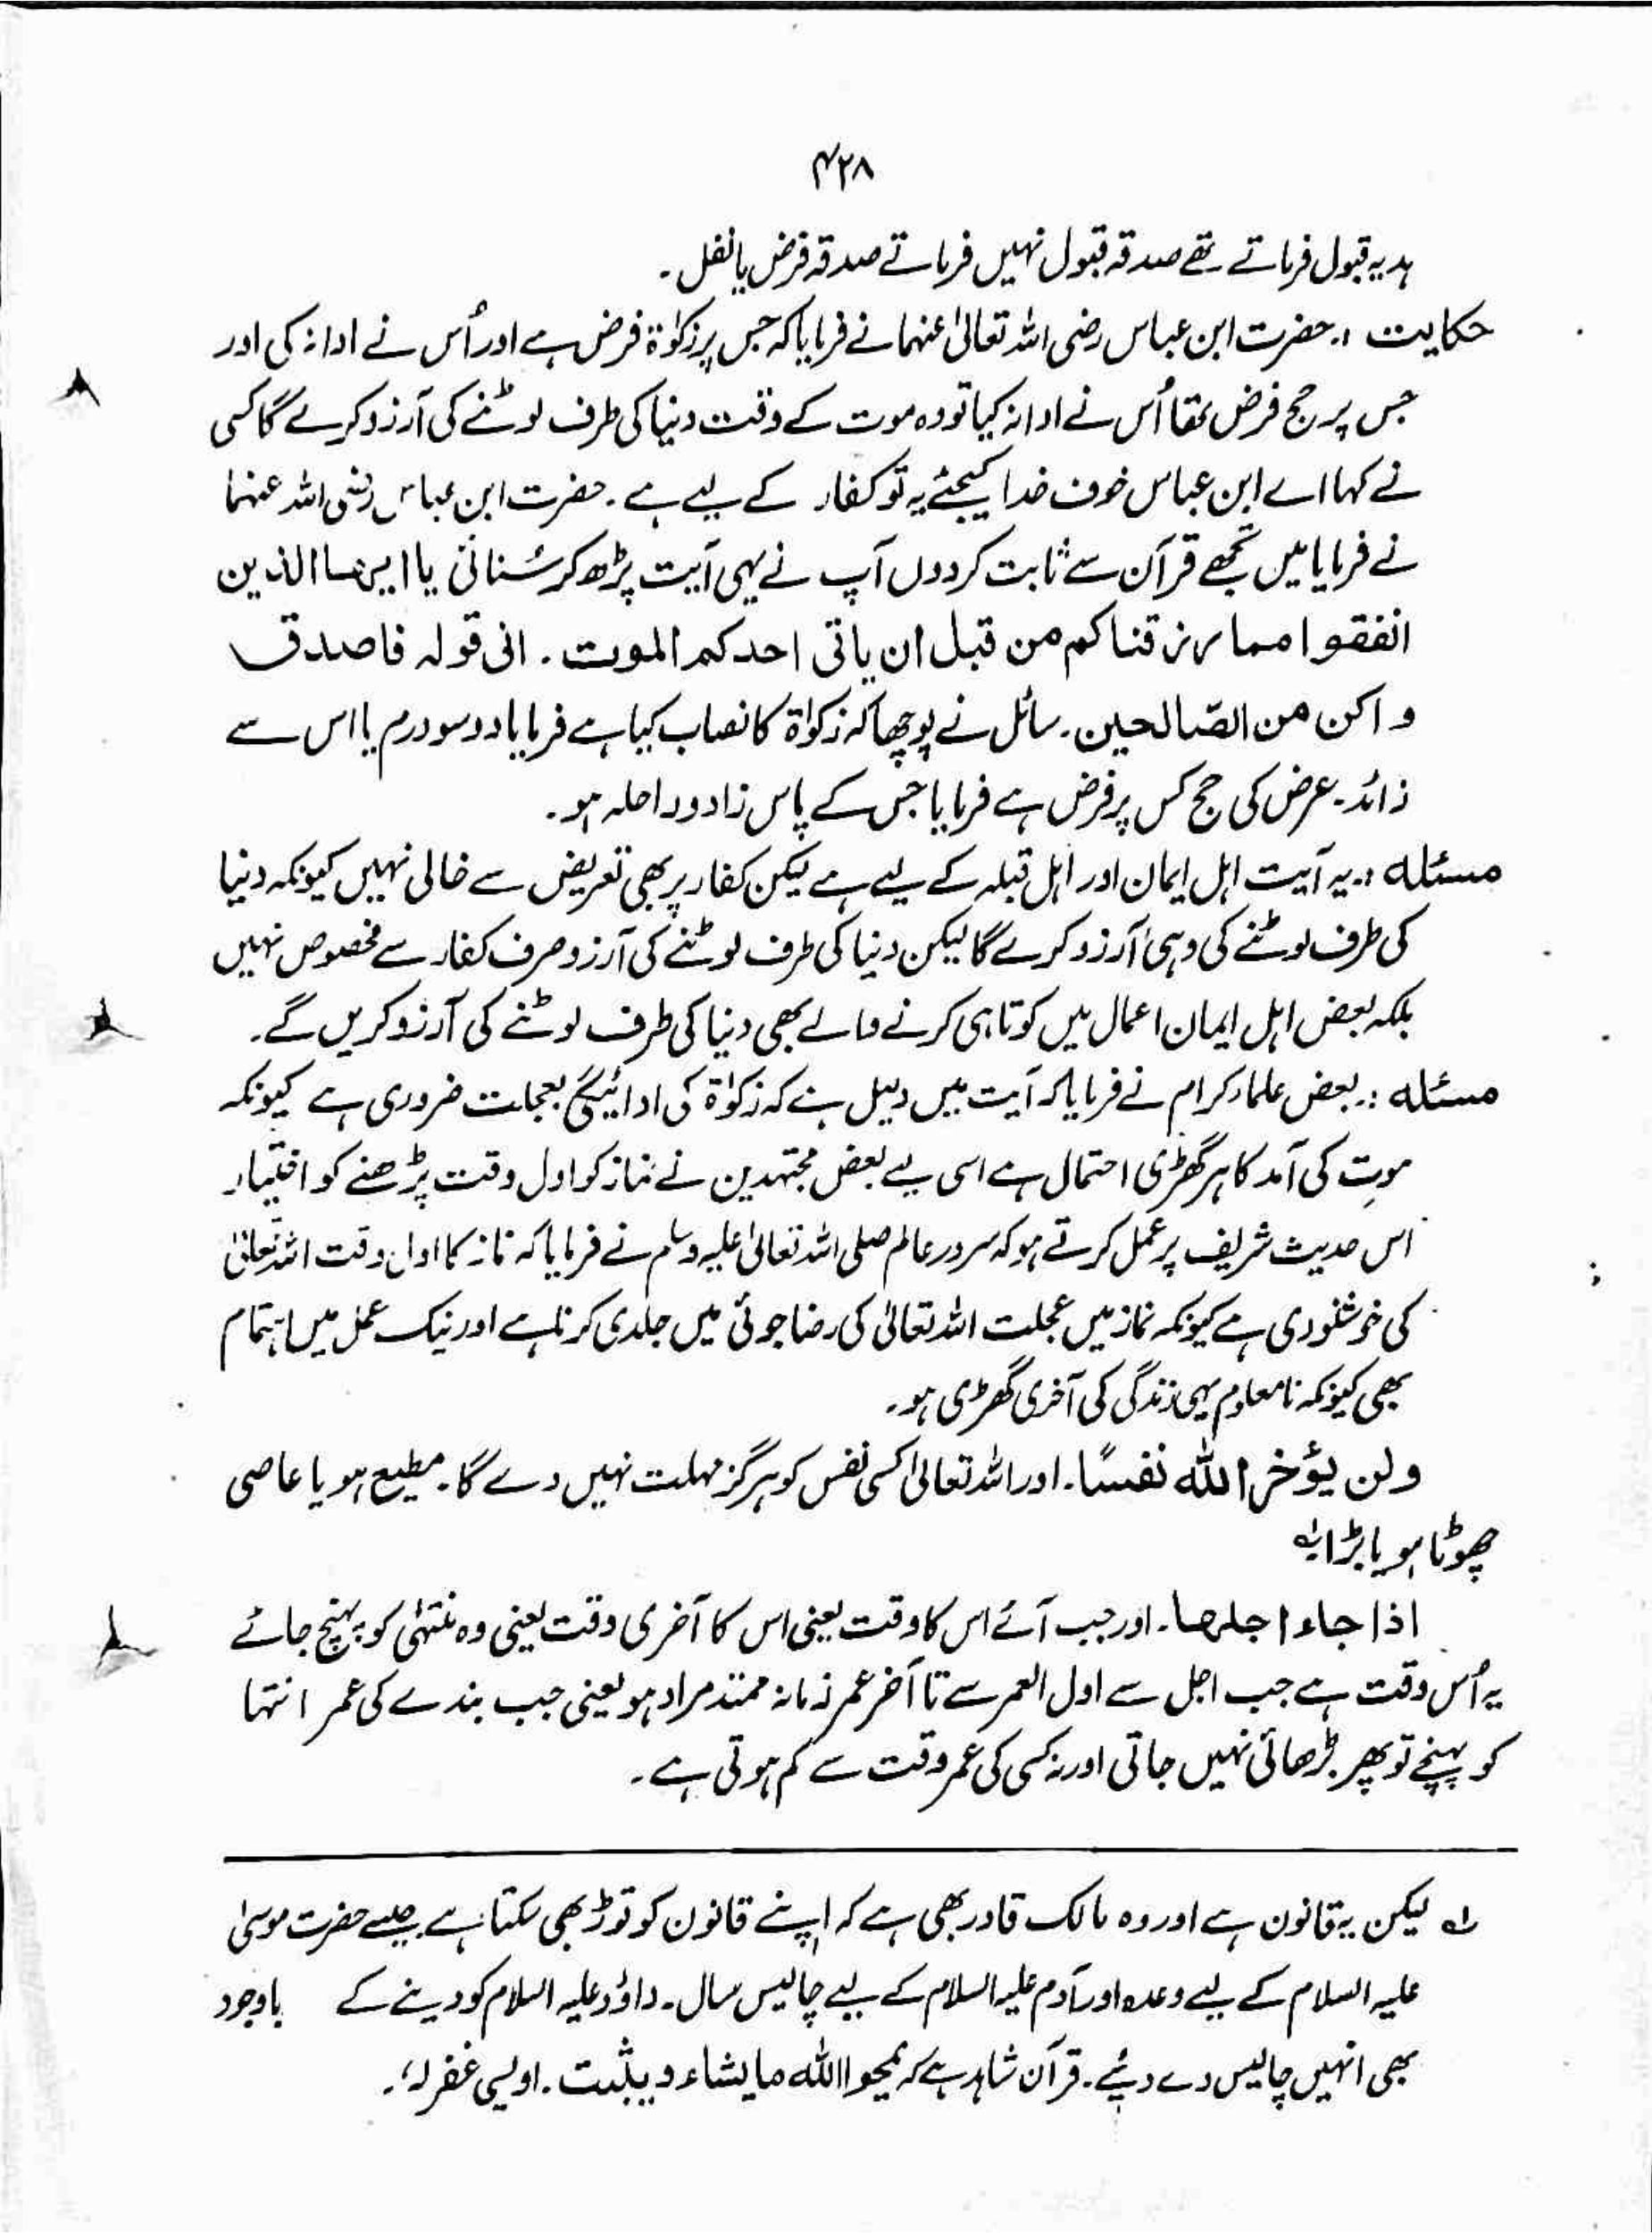 ۴۲۸
ہدیہ قبول فرماتے تھے صدقہ قبول نہیں فرماتے صدقہ فرض یا نفل۔
حکایت :۔ حضرت ابن عباس رضی اللہ تعالیٰ عنہما نے فرمایا کہ جس پر زکوٰۃ فرض ہے اور اُس نے ادا نہ کی اور
جس پر حج فرض تھا اُس نے ادا نہ کیا تو وہ موت کے وقت دنیا کی طرف لوٹنے کی آرزو کرے گا کسی
نے کہا اے ابن عباس خوف خدا کیجئے یہ تو کفار کے لیے ہے۔ حضرت ابن عباس رضی اللہ عنہما
نے فرمایا میں تجھے قرآن سے ثابت کردوں آپ نے یہی آیت پڑھ کر سُنائی یا ایہا الذین
انفقوا مما رزقناکم من قبل ان یاتی احدکم الموت۔ الی قولہ فاصدق
و اکن من الصّالحین۔ سائل نے پوچھا کہ زکوٰۃ کا نصاب کیا ہے فرمایا دو سو درم یا اس سے
زائد۔ عرض کی حج کس پر فرض ہے فرمایا جس کے پاس زاد و راحلہ ہو۔
مسئلہ :۔ یہ آیت اہل ایمان اور اہل قبلہ کے لیے ہے لیکن کفار پر بھی تعریض سے خالی نہیں کیونکہ دنیا
کی طرف لوٹنے کی وہی آرزو کرے گا لیکن دنیا کی طرف لوٹنے کی آرزو صرف کفار سے مخصوص نہیں
بلکہ بعض اہل ایمان اعمال میں کوتاہی کرنے والے بھی دنیا کی طرف لوٹنے کی آرزو کریں گے۔
مسئلہ :۔ بعض علماء کرام نے فرمایا کہ آیت میں دلیل ہے کہ زکوٰۃ کی ادائیگی بعجلت ضروری ہے کیونکہ
موت کی آمد کا ہر گھڑی احتمال ہے اسی لیے بعض مجتہدین نے نماز کو اول وقت پڑھنے کو اختیار
اس حدیث شریف پر عمل کرتے ہو کہ سرور عالم صلی اللہ تعالیٰ علیہ وسلم نے فرمایا کہ نماز کا اول وقت اللہ تعالیٰ
کی خوشنودی ہے کیونکہ نماز میں عجلت اللہ تعالیٰ کی رضا جوئی میں جلدی کرنا ہے اور نیک عمل میں اہتمام
بھی کیونکہ نامعلوم یہی زندگی کی آخری گھڑی ہو۔
ولن یؤخر اللہ نفسًا۔ اور اللہ تعالیٰ کسی نفس کو ہرگز مہلت نہیں دے گا۔ مطیع ہو یا عاصی
چھوٹا ہو یا بڑا ؎۱
اذا جاء اجلہا۔ اور جب آئے اس کا وقت یعنی اس کا آخری وقت یعنی وہ منتہٰی کو پہنچ جائے
یہ اُس وقت ہے جب اجل سے اول العمر سے تا آخر عمر زمانہ ممتد مراد ہو یعنی جب بندے کی عمر انتہا
کو پہنچے تو پھر بڑھائی نہیں جاتی اور نہ کسی کی عمر وقت سے کم ہوتی ہے۔
؎۱ لیکن یہ قانون ہے اور وہ مالک قادر بھی ہے کہ اپنے قانون کو توڑ بھی سکتا ہے جیسے حضرت موسیٰ
علیہ السلام کے لیے وعدہ اور آدم علیہ السلام کے لیے چالیس سال۔ داؤد علیہ السلام کو دینے کے باوجود
بھی انہیں چالیس دے دیئے۔ قرآن شاہد ہے کہ یمحوا اللہ ما یشاء و یثبت۔ اویسی غفرلہ،۔